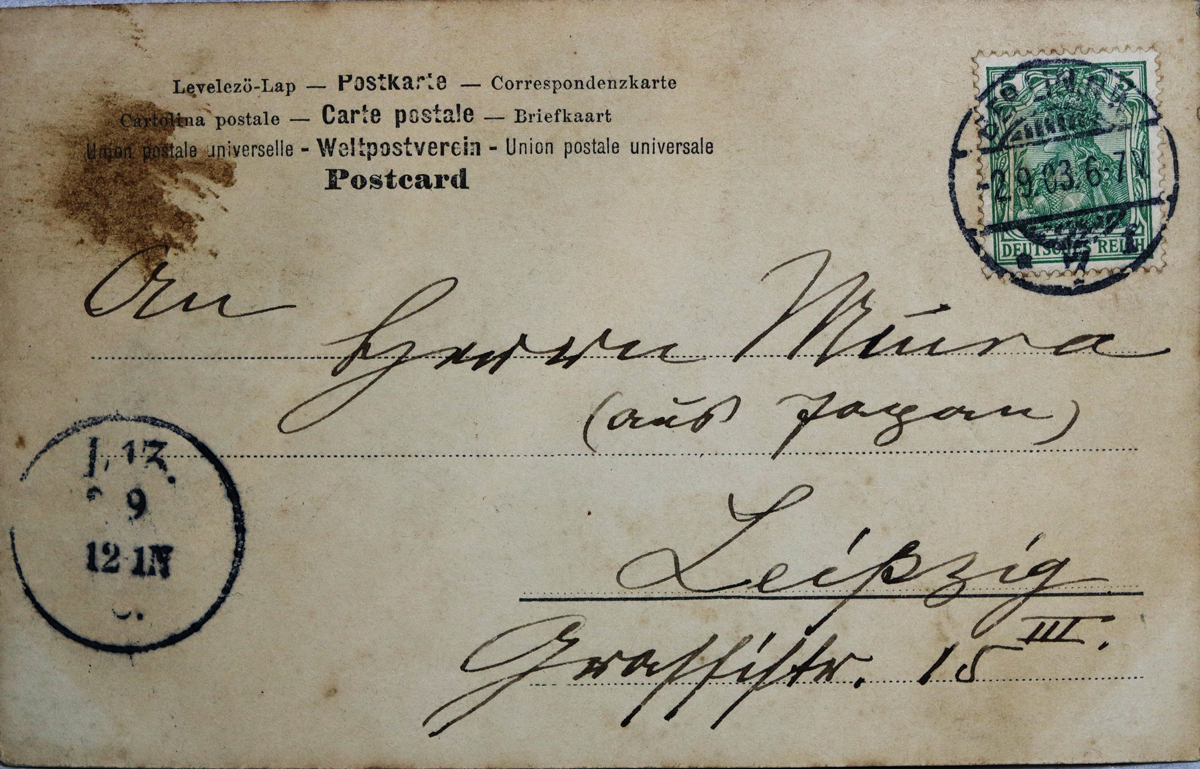 Levelezö-Lap — Postkarte — Correspondenzkarte
Cartolina postale — Carte postale — Briefkaart
Union postale universelle - Weltpostverein - Union postale universale
Postcard
DEUTSCHES REICH
2.9.03.6-7N
An
Herrn Miura
(aus Japan)
Leipzig
Grassistr. 15 III.
9
12-1N